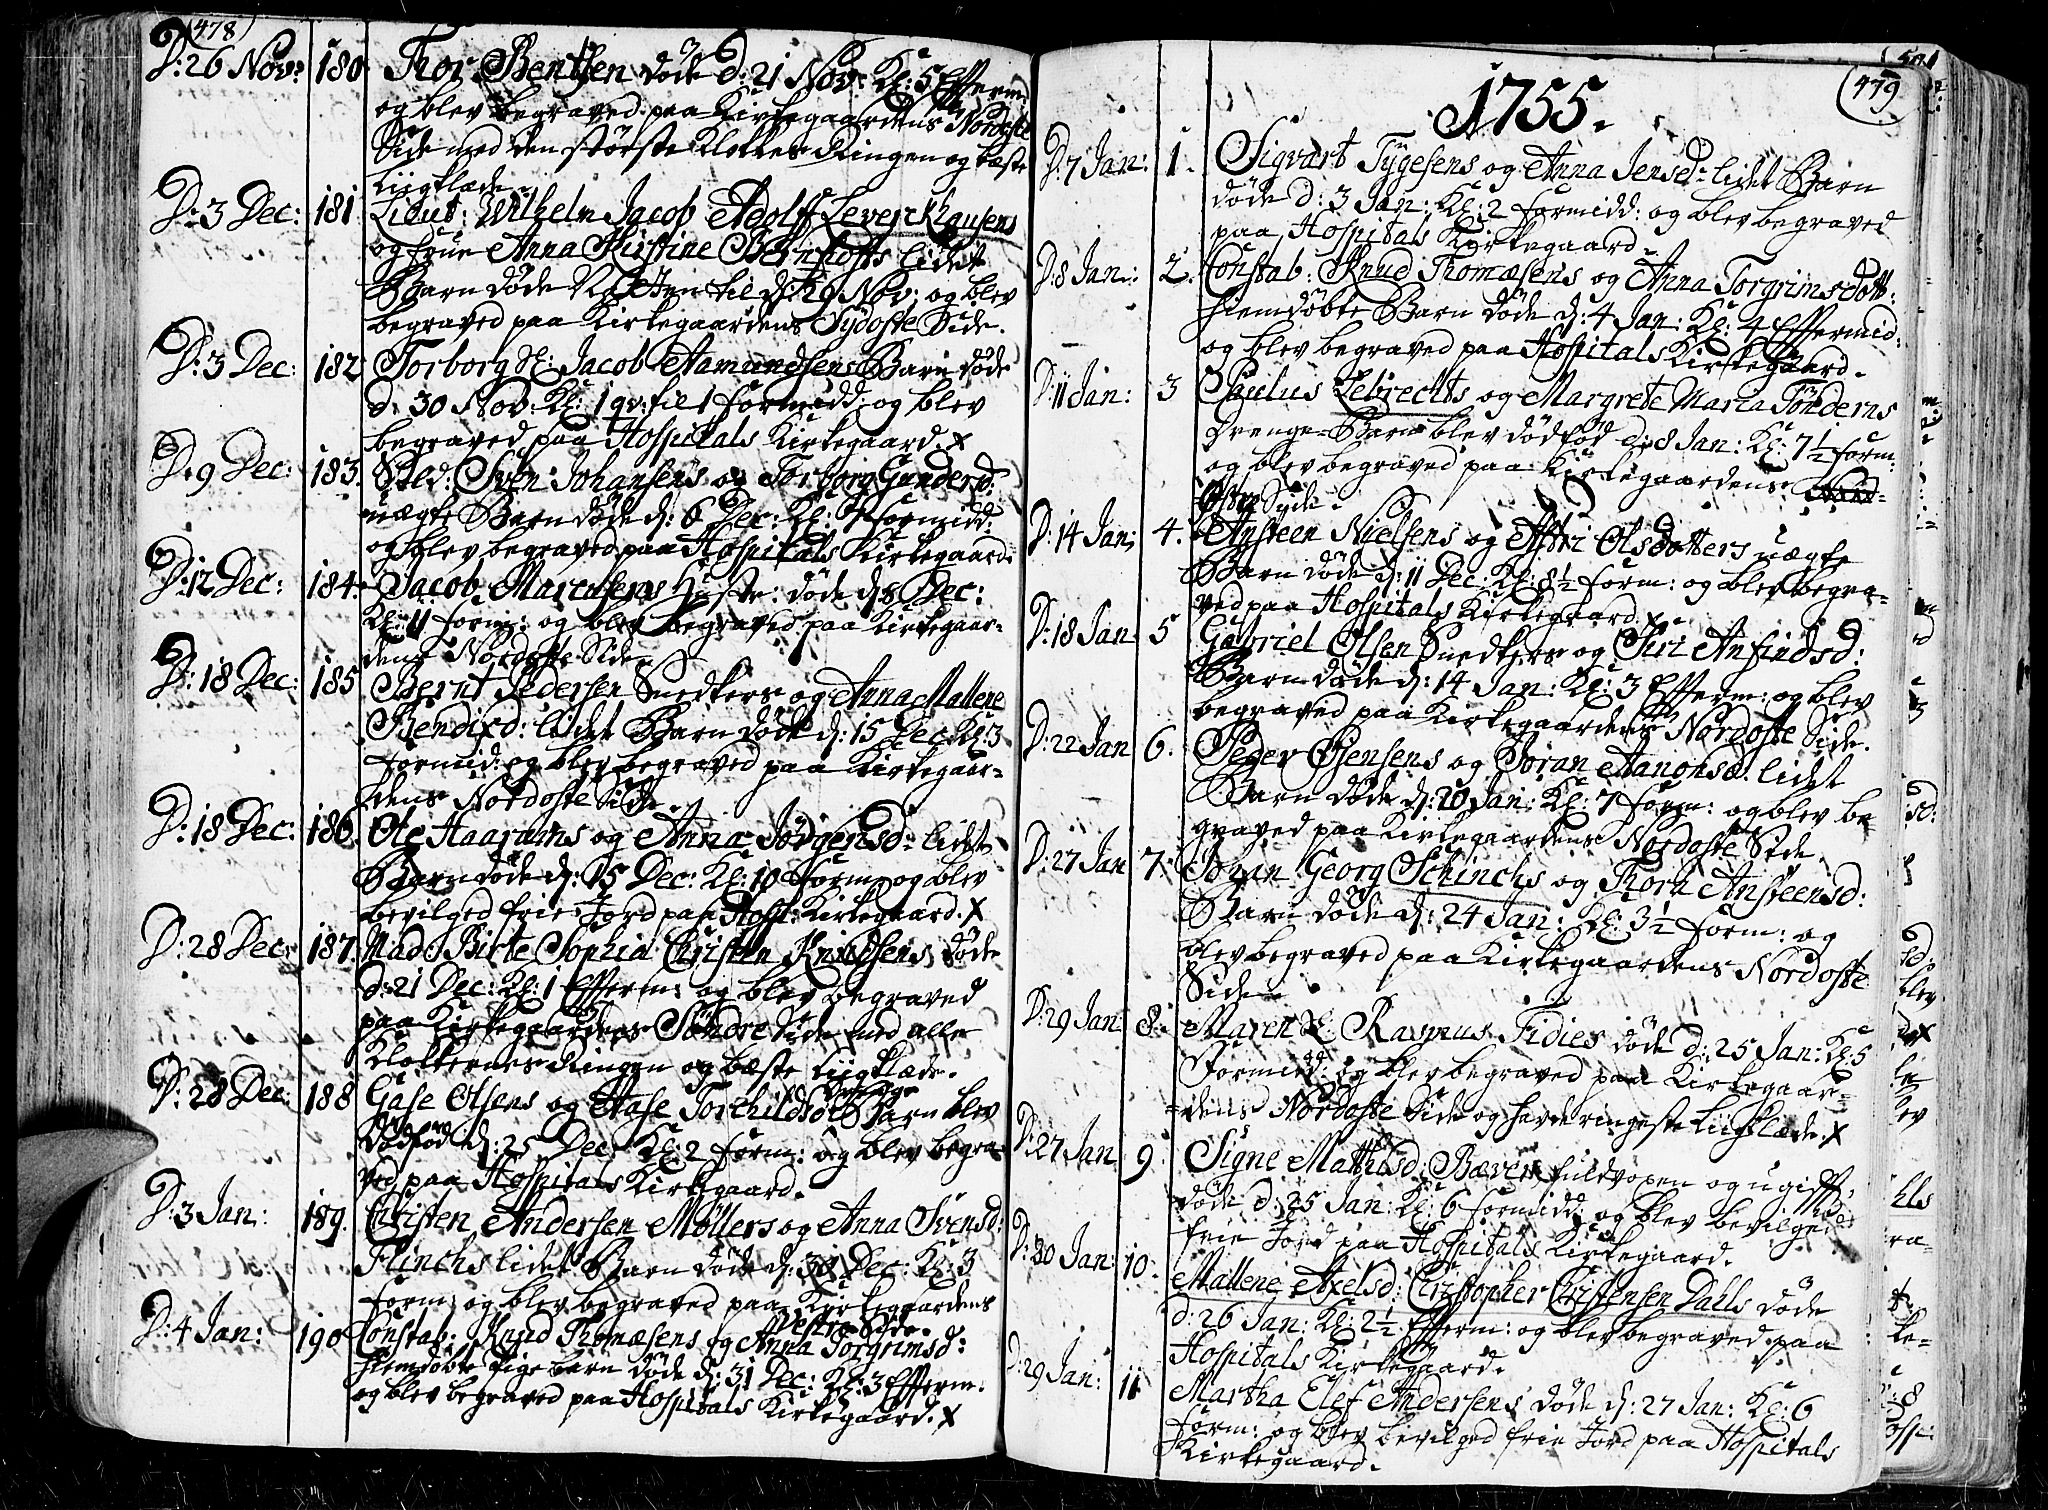 478
D: 26 Nov: 180 Thor Bentsen døde d: 21 Nov: Kl: 5 Efferm:
og blev begraved paa Kirkegaardens Nordoste
Side med den største Klokkes Ringen og bæste
Liigklæde.
D: 3 Dec: 181 Lieut: Wilhelm Jacob Adolff Leverckhausens
og Frue Anna Kirstine lidet
Barn døde Natten til d: 29 Nov: og blev
begraved paa Kirkegaardens Sydoste Side.
D: 3 Dec: 182 Torborg Sl: Jacob Aamundsens Barn døde
d: 30 Nov: Kl: 1 qv: til 1 formidd: og blev
begraved paa Hospitals Kirkegaard. X
D: 9 Dec: 183. Sold: Sven Johansens og Torborg Gundersd:
uægte Barn døde d: 6 Dec: Kl: 7 formidd:
og blev begraved paa Hospitals Kirkegaard.
D: 12 Dec: 184. Jacob Marcusens Hustr: døde d: 8 Dec:
Kl: 11 form: og blev begraved paa Kirkegaar-
dens Nordoste Side.
D: 18 Dec: 185 Bernt Pedersen Snedkers og Anna Mallene
Bendixd: lidet Barn døde d: 15 Dec Kl: 3
formid: og blev begraved paa Kirkegaar-
dens Nordoste Side.
D: 18 Dec: 186. Ole Haagams og Anna Jörgensd: lidet
Barn døde d: 15 Dec: Kl: 10 form: og blev
bevilged frie Jord paa Hosp: Kirkegaard. X
D: 28 Dec: 187. Mad: Birte Sophia Christen Knudsens døde
d: 21 Dec: Kl: 1 Efferm: og blev begraved
paa Kirkegaardens Söndre Side med alle
Klokkernes Ringen og bæste Liigklæde.
D: 28 Dec: 188 Gase Olsens og Aase Torchildsd: Barn blev
dødfød d: 25 Dec: Kl: 2 form: og blev begra-
ved paa Hospitals Kirkegaard.
D: 3 Jan: 189. Christen Andersen Möllers og Anna Svensd:
Flinchs lidet Barn døde d: 30 Dec: Kl: 3
form: og blev begraved paa Kirkegaardens
Vestre Side.
D: 4 Jan: 190 Constab: Knud Thomæsens og Anna Torgrimsd:
hiemdøbte Pige barn døde d: 31 Dec: Kl: 3 Efferm:
og blev begraved paa Hospitals Kirkegaard. X
479
1755.
D: 7 Jan: 1. Sigvart Tygesens og Anna Jensd: lidet Barn
døde d: 3 Jan: Kl: 2 formidd: og blev begraved
paa Hospitals Kirkegaard.
D: 8 Jan: 2. Constab: Knud Thomæsens og Anna Torgrimsdott:
hiemdøbte Barn døde d: 4 Jan: Kl: 4 Effermid:
og blev begraved paa Hospitals Kirkegaard.
D: 11 Jan: 3 Paulus Lebrechts og Margrete Maria Tönderns
Drenge-Barn blev dødfød d: 8 Jan: Kl: 7 1/2 form:
og blev begraved paa Kirkegaardens
Østre Syde.
D: 14 Jan: 4. Ansteen Nielsens og Astri Olsdotters uægte
Barn døde d: 11 Dec: Kl: 8 1/2 form: og blev begra-
ved paa Hospitals Kirkegaard. X
D: 18 Jan 5 Gabriel Olsen Snedkers og Siri Anfindsd:
Barn døde d: 14 Jan: Kl: 3 Efferm: og blev
begraved paa Kirkegaardens Nordoste Side.
D: 22 Jan 6. Peder Jensens og Joran Aanonsd: lidet
Barn døde d: 20 Jan: Kl: 7 form: og blev be-
graved paa Kirkegaardens Nordoste Side.
D: 27 Jan 7. Johan Georg Schinchs og Thora Ansteensd:
Barn døde d: 24 Jan: Kl: 3 1/2 form: og
blev begraved paa Kirkegaardens Nordoste
Side.
D: 29 Jan: 8. Maren Sl: Rasmus Fidies døde d: 25 Jan: Kl: 5
Formidd: og blev begraved paa Kirkegaar-
dens Nordoste Side og havde ringeste Liigklæde. X
D: 27 Jan 9 Signe Mathisd: Bævers fuldvoxen og ugift
døde d: 25 Jan: Kl: 6 formidd: og blev bevilged
frie Jord paa Hospitals Kirkegaard.
D: 30 Jan: 10. Mallene Axelsd: Christopher Christensen Dahls døde
d: 26 Jan: Kl: 2 1/2 Efferm: og blev begraved paa
Hospitals Kirkegaard.
D: 29 Jan: 11 Martha Elef Andersens døde d: 27 Jan: Kl: 6
form: og blev bevilged frie Jord paa Hospitals
Kirkegaard.